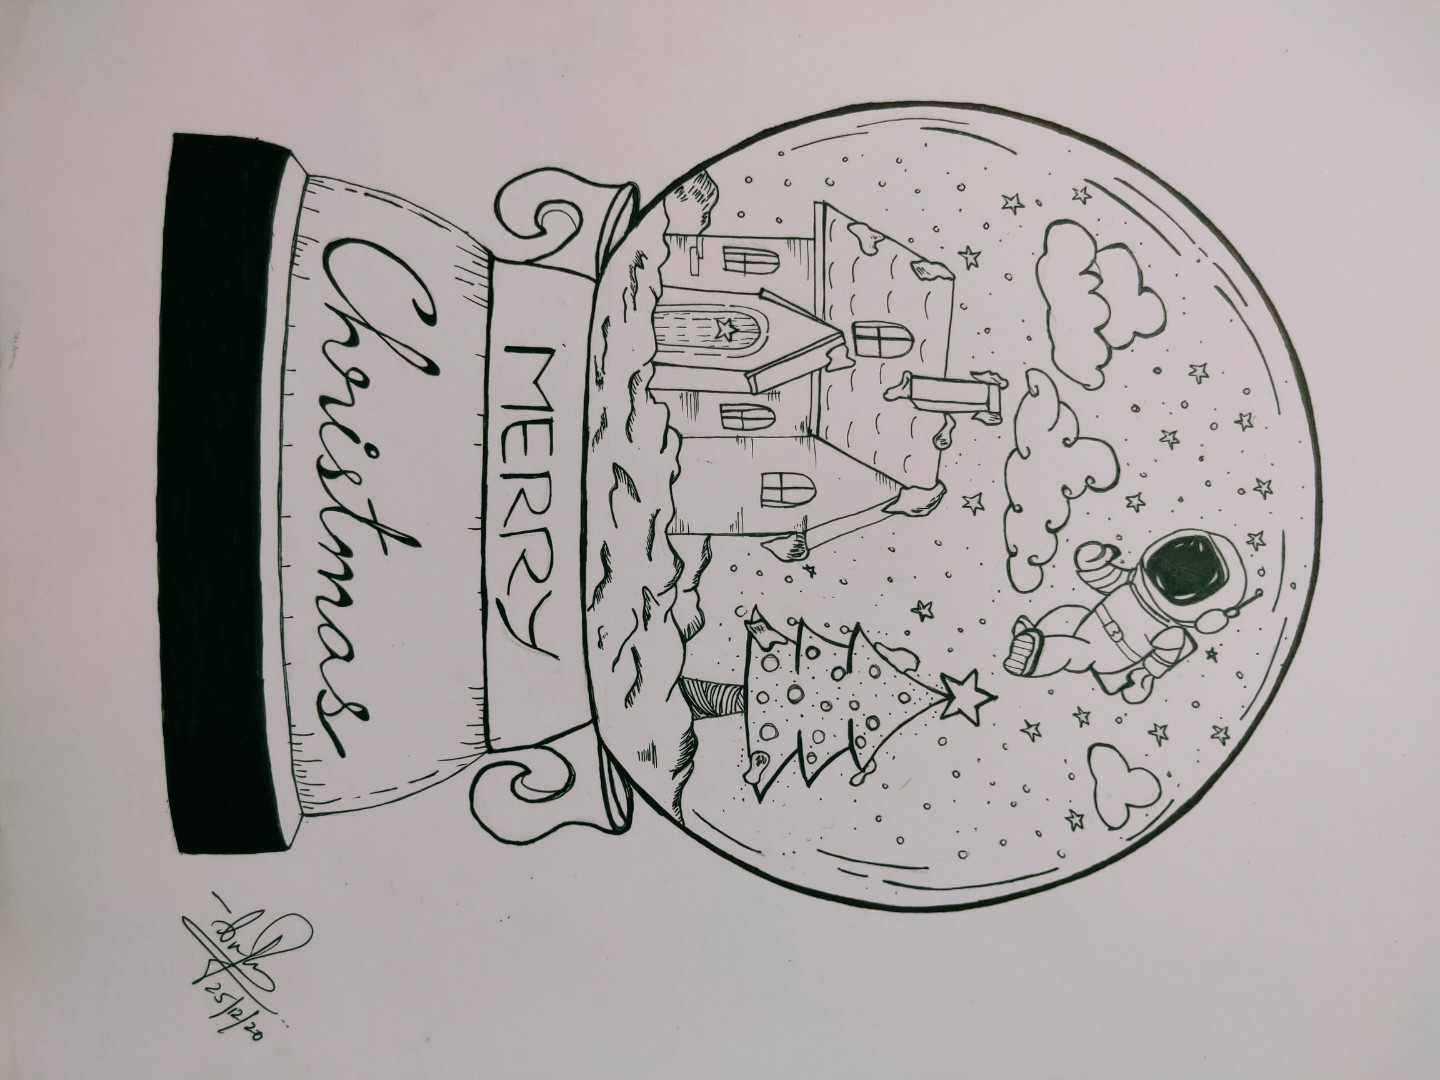 MERRY
Christmas
25/12/20